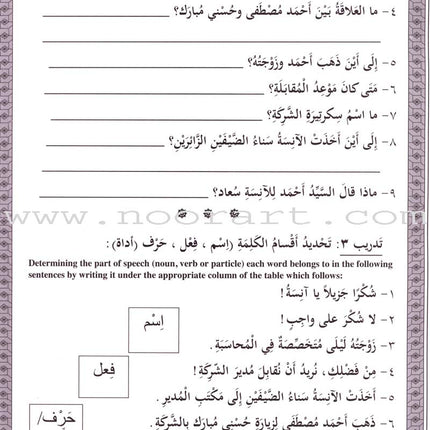 ٤- ما العَلاقَةُ بَيْنَ أَحْمَد مُصْطَفى وحُسْني مُبارَك؟
٥- إِلى أَيْنَ ذَهَبَ أَحْمَد وزَوْجَتُهُ؟
٦- مَتى كانَ مَوْعِدُ المُقابَلَةِ؟
٧- ما اسْمُ سِكرتيرَةِ الشَّرِكَةِ؟
٨- إِلى أَيْنَ أَخَذَتْ الآنِسَةُ سَناءُ الضَّيْفَيْنِ الزَّائِرَيْنِ؟
٩- ماذا قالَ السَّيِّدُ أَحْمَد لِلآنِسَةِ سُعاد؟
www.noorart.com
تَدريب ٣: تَحْديدُ أَقْسامُ الكَلِمَةِ (اِسْم ، فِعْل ، حَرْف (أداة) :
Determining the part of speech (noun, verb or particle) each word belongs to in the following
sentences by writing it under the appropriate column of the table which follows:
١- شُكْرًا جَزيلاً يا آنِسَةُ!
٢- لا شُكْرَ على واجِبٍ!
اِسْم
٣- زَوْجَتُهُ لَيْلَى مُتَخَصِّصَةٌ في الْمُحاسَبَةِ.
٤- مِنْ فَضْلِكِ، نُريدُ أَنْ نُقابِلَ مُديرَ الشَّرِكَةِ!
فِعل
٥- أَخَذَتْ الآنِسَةُ سَناءُ الضَّيْفَيْنِ إِلى مَكْتَبِ الْمُديرِ.
٦- ذَهَبَ أَحْمَد مُصْطَفى لِزِيارَةِ حُسْني مُبارَك بِالشَّرِكَةِ.
حَرِف/